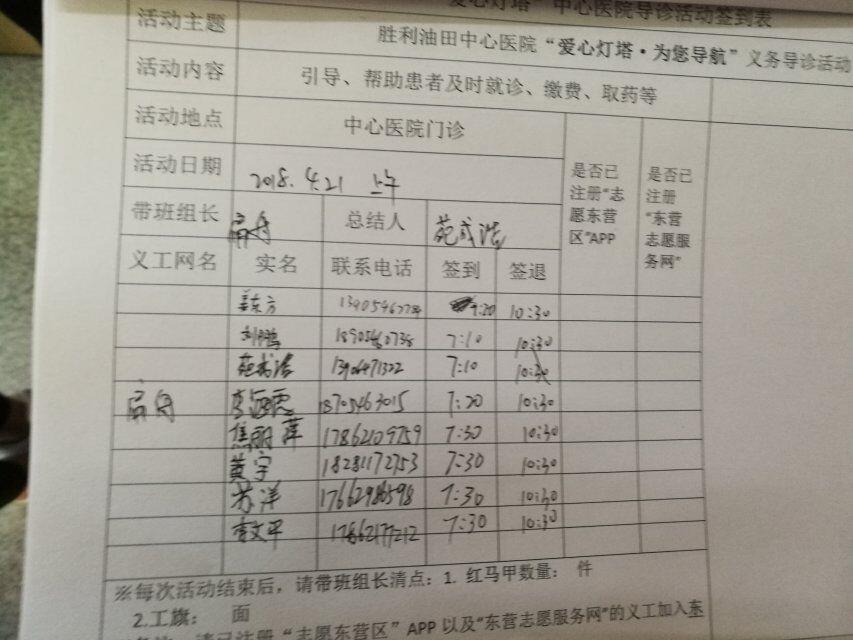 爱心灯塔”中心医院导诊活动签到表
活动主题 胜利油田中心医院“爱心灯塔·为您导航”义务导诊活动
活动内容 引导、帮助患者及时就诊、缴费、取药等
活动地点 中心医院门诊 是否已注册“志愿东营区”APP 是否已注册“东营志愿服务网”
活动日期 2018.4.21 上午
带班组长 总结人 苑成浩
义工网名 实名 联系电话 签到 签退
姜东方 7:20 10:30
刘鹏 7:10 10:30
苑成浩 7:10 10:30
18705463015 7:20 10:30
焦丽萍 17862109759 7:30 10:30
黄宇 18281172753 7:30 10:30
苏洋 7:30 10:30
李文平 17862177212 7:30 10:30
※每次活动结束后，请带班组长清点：1. 红马甲数量： 件
2.工旗： 面
请已注册“志愿东营区”APP 以及“东营志愿服务网”的义工加入东